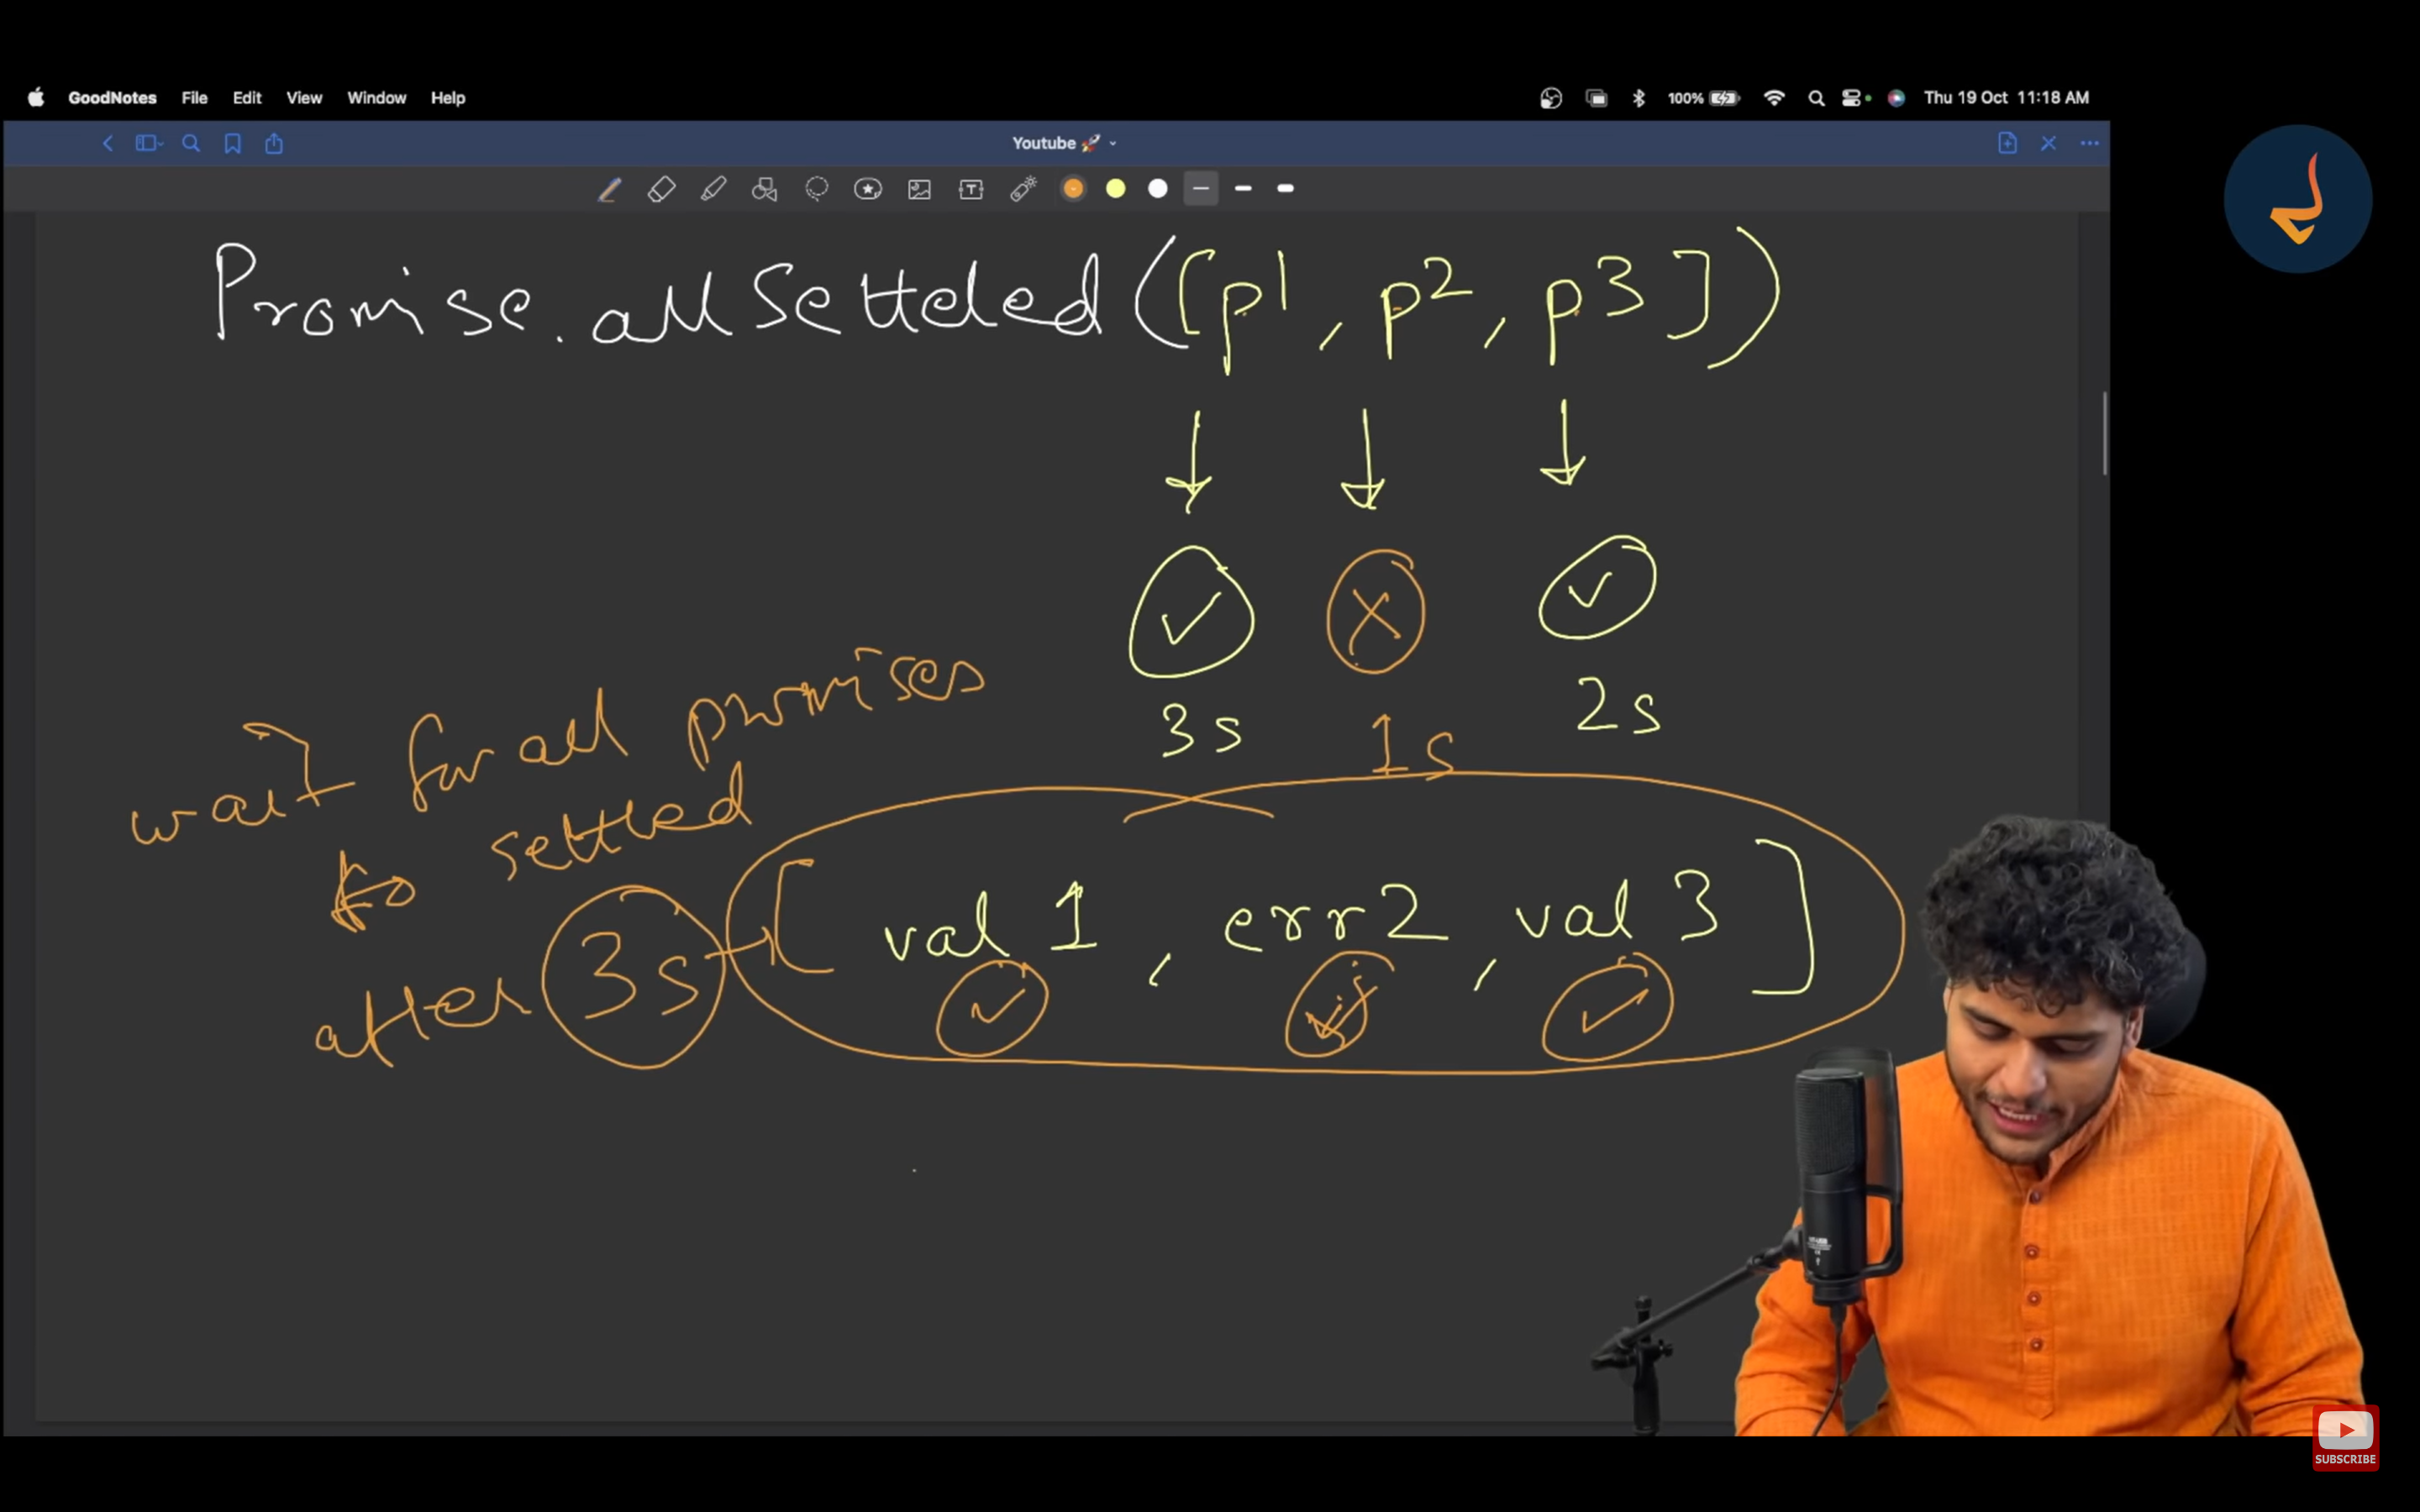 GoodNotes File Edit View Window Help 100% Thu 19 Oct 11:18 AM
Youtube 🚀
T
Promise.allSettled([p1, p2, p3])
3s 1s 2s
wait for all promises
to settled
after 3s → [val 1, err2, val 3]
SUBSCRIBE